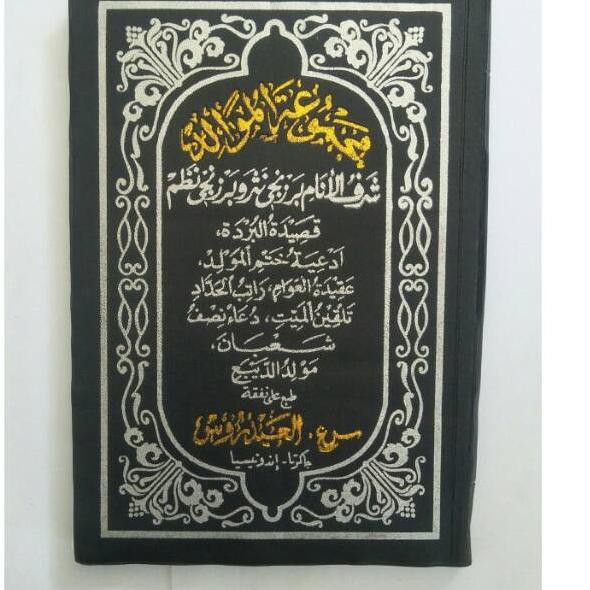 مجموعة الموالد
شرف الأنام برزنجي نثر وبرزنجي نظم
قصيدة البردة،
ادعية ختم المولد،
عقيدة العوام، راتب الحداد
تلقين الميت، دعاء نصف
شعبان،
مولد الديبع
طبع على نفقة
س.ع. العيدروس
جاكرتا - إندونيسيا